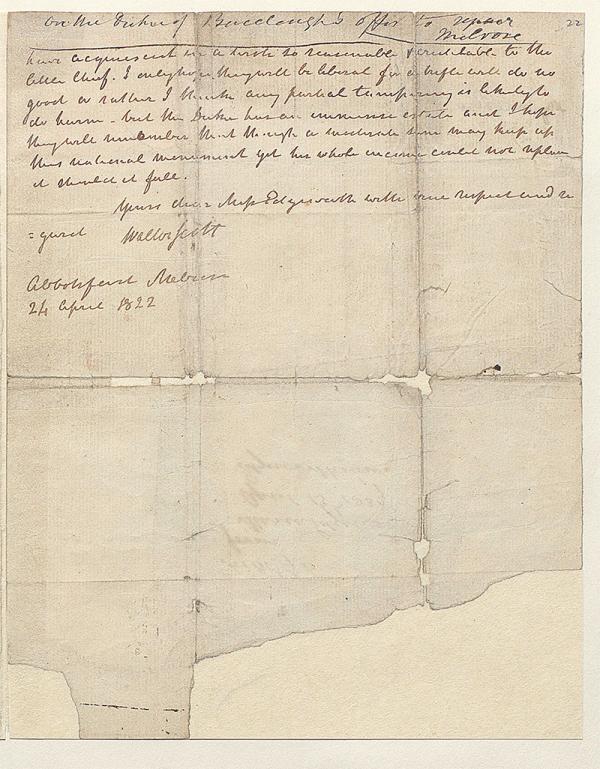 on the Duke of Buccleugh's offer to repair
Melrose
22
have acquiesced in a wish so reasonable & creditable to the
little Chief. I only hope they will be liberal for a trifle will do no
good or rather I think any partial tampering is likely to
do harm - but the Duke has an immense estate and I hope
they will remember that though a moderate sum may keep up
this national monument yet his whole income could not replace
it should it fall.
Yours dear Miss Edgeworth with true respect and re
=gard Walter Scott
Abbotsford Melrose
24 April 1822